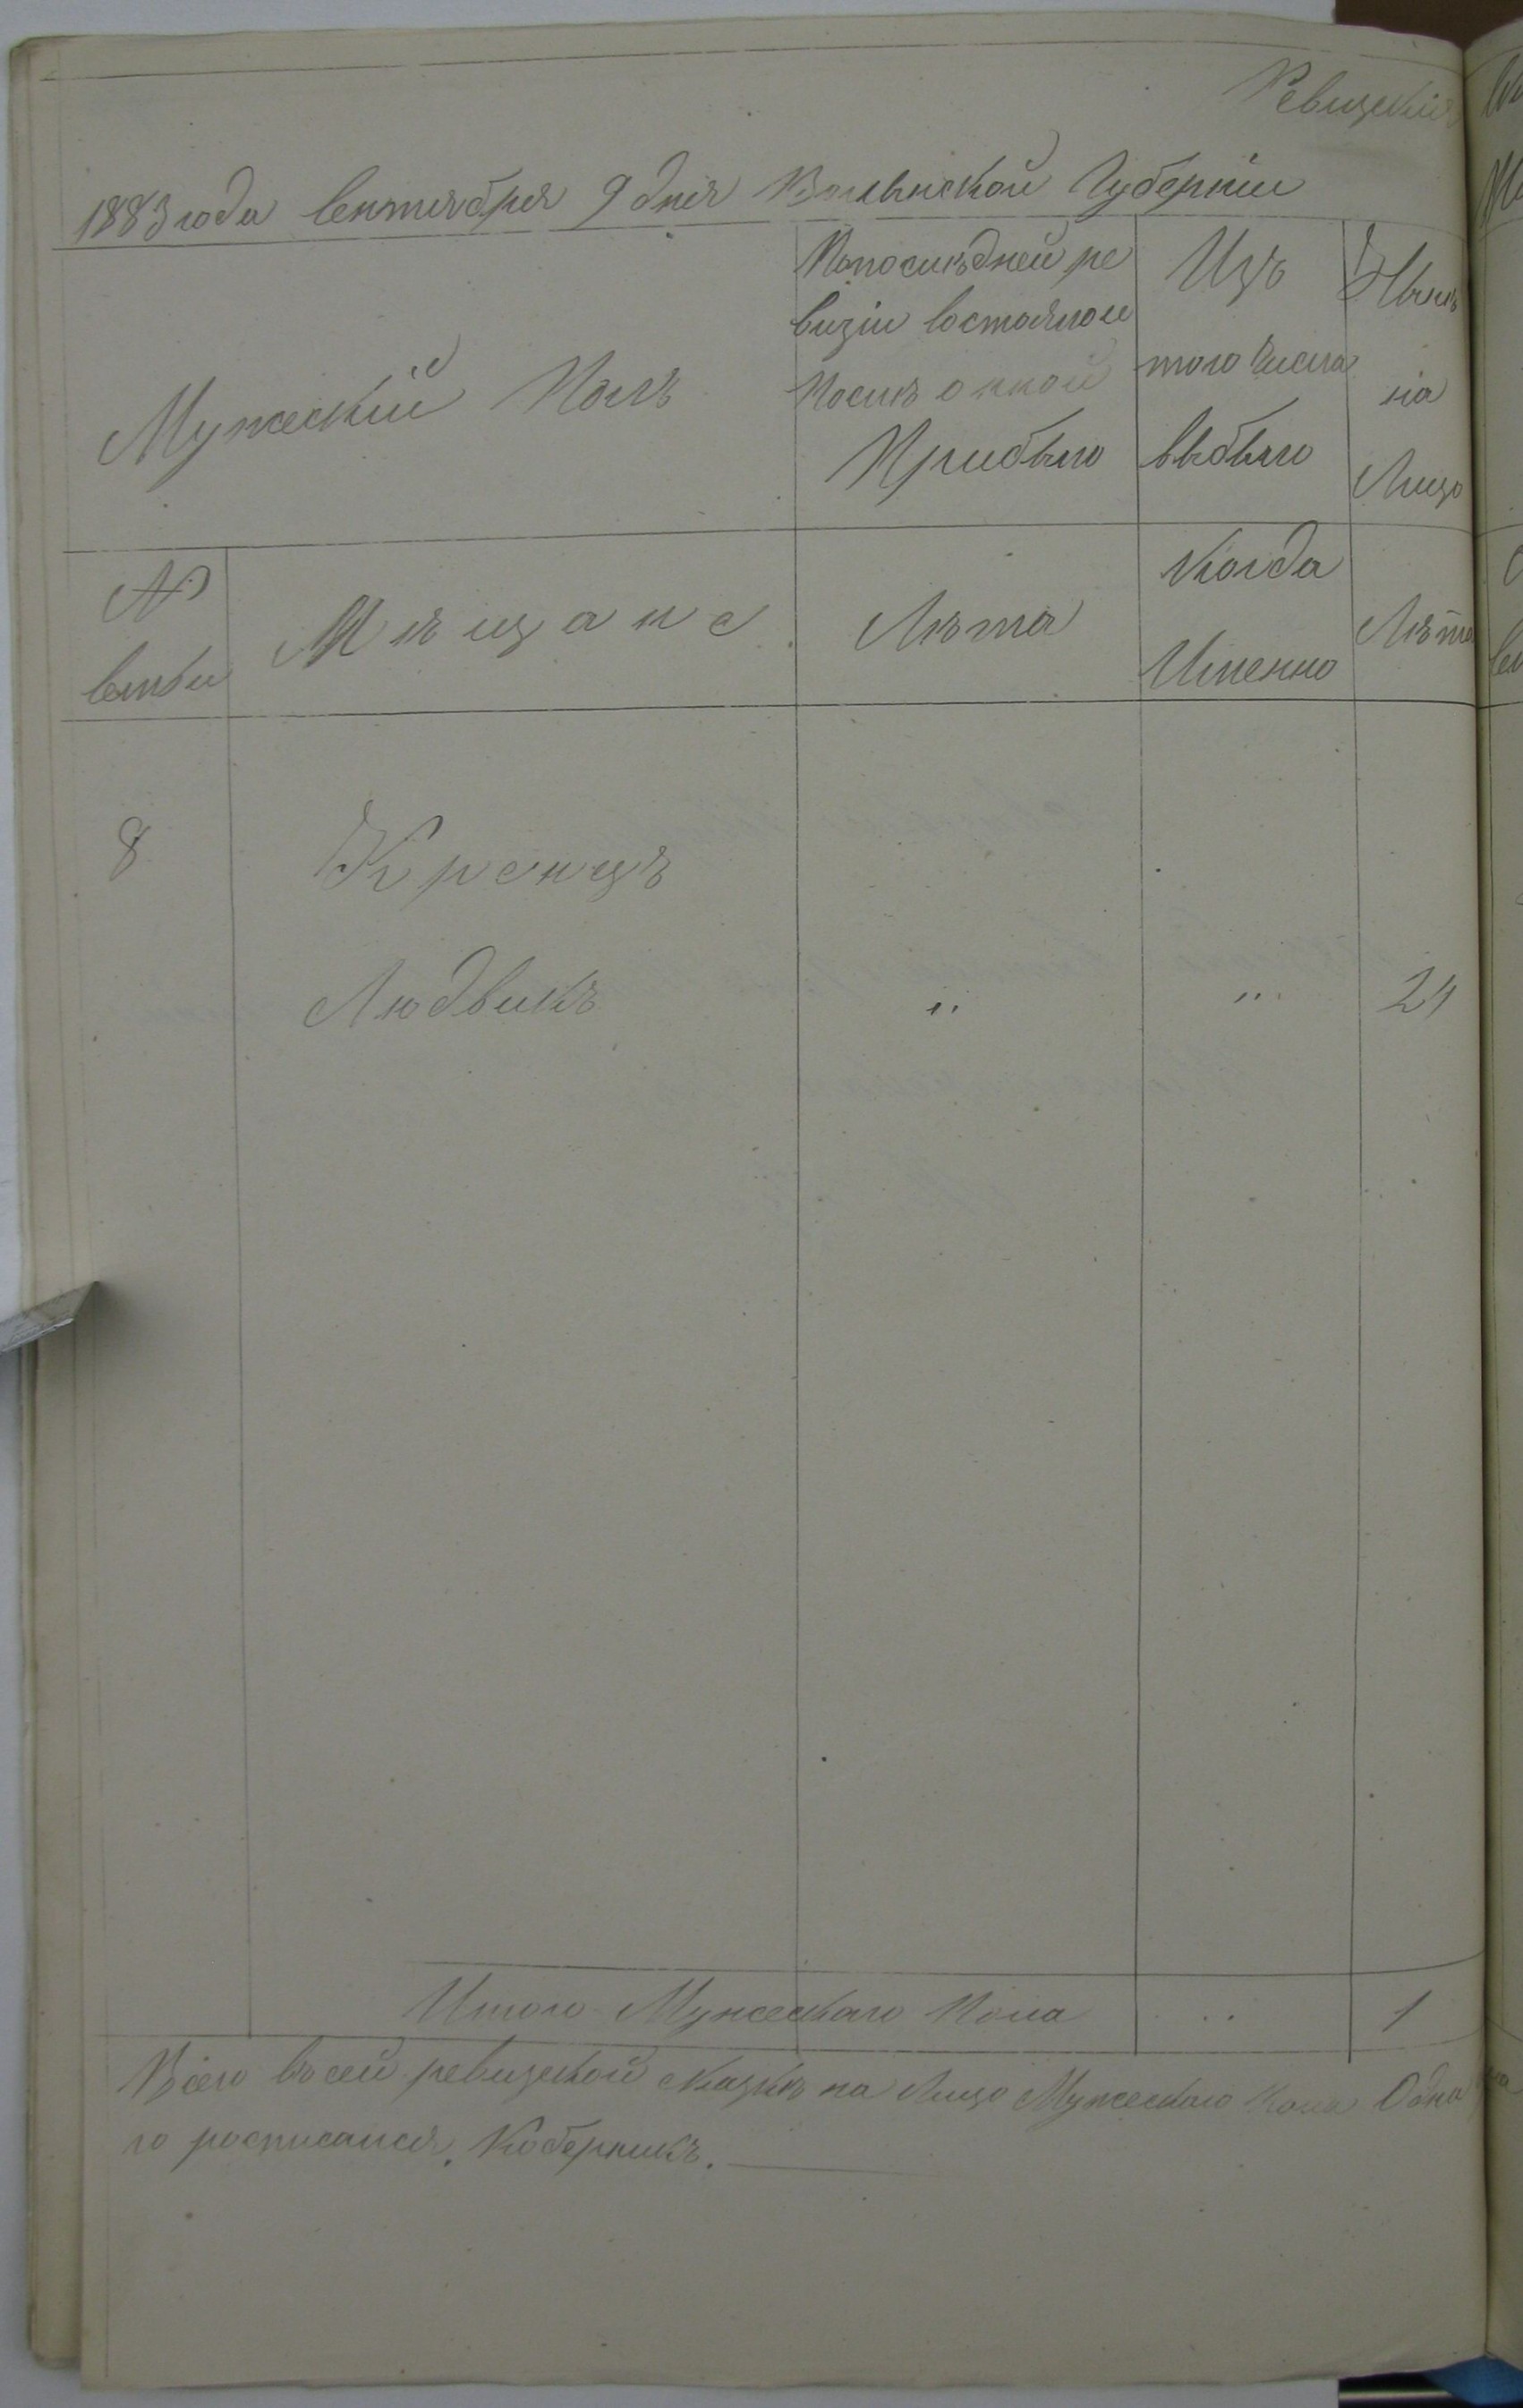 Ревизская
1883 года Сентября 9 дня Волынской Губерніи
Мужескій Полъ
По последней ре
визіи состояло и
после оной
Прибыло
Изъ
того числа
выбыло
Ныне
на
Лицо
№
семьи
Мѣщане
Лѣта
Когда
Именно
Лѣта
8
Кренцъ
Людвикъ
"
"
24
Итого Мужескаго Пола
"
1
Всего въ сей ревизской сказкѣ на Лицо Мужескаго пола Одна
го росписался. Коберникъ.